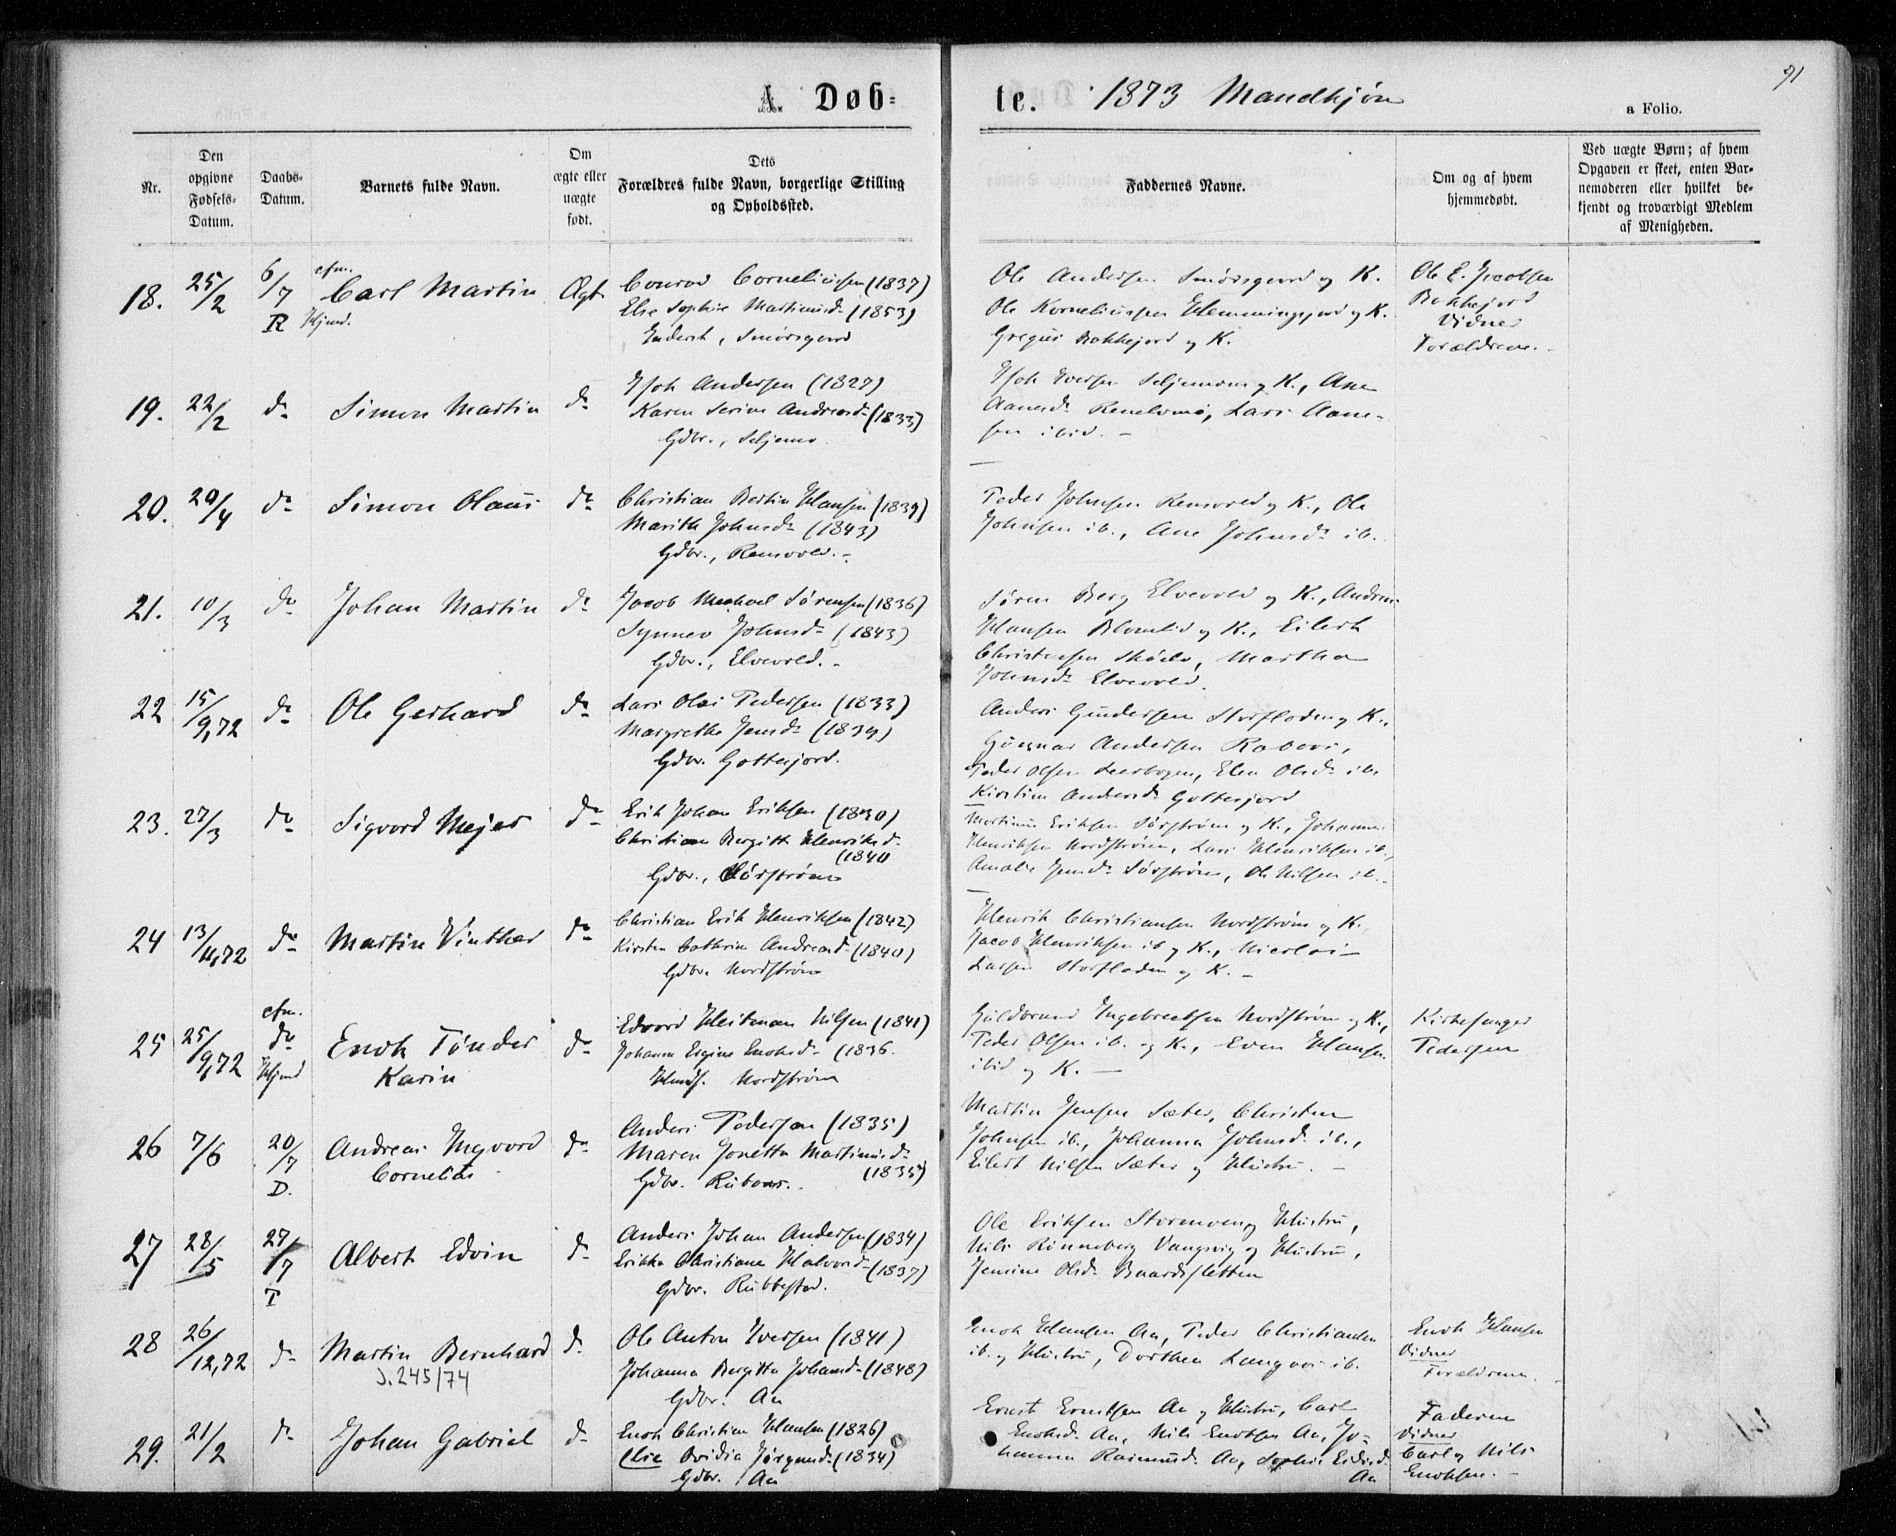 91
A. Døb-
te. 1873 Mandkjøn
a Folio.
Nr.
Den opgivne Fødsels-Datum.
Daabs-Datum.
Barnets fulde Navn.
Om ægte eller uægte født.
Dets Forældres fulde Navn, borgerlige Stilling og Opholdssted.
Faddernes Navne.
Om og af hvem hjemmedøbt.
Ved uægte Børn; af hvem Opgaven er skeet, enten Barnemoderen eller hvilket bekjendt og troværdigt Medlem af Menigheden.
18. 25/2 6/7 R cfm. Hjmd. Carl Martin Ægt.
Conrad Corneliussen (1837)
Else Sophie Martinusd. (1853)
Inderst, Smørsgaard
Ole Andersen Smørsgaard og K.
Ole Korneliussen Hemmingsjord og K.
Gregus Bakkejord og K.
Ole E. Jacobsen
Bakkejord
Vidner
Forældrene.
19. 22/2 do Simon Martin do
Isak Andersen (1827)
Karen Serine Andreasd. (1833)
Gdbr., Seljemo
Isak Iversen Seljemoen og K., Ane
Aanesd. Renelvmo, Lars Aane-
sen ibid.
20. 20/4 do Simon Olaus do
Christian Bertin Hansen (1839)
Marith Johnsd. (1843)
Gdbr., Remsvold.
Peder Johnsen Remsvold og K., Ole
Johnsen ib., Ane Johnsd. ib.
21. 10/3 do Johan Martin do
Jacob Michael Sørensen (1836)
Synnev Johnsd. (1843)
Gdbr., Elvevold.
Søren Berg Elvevold og K., Andreas
Hansen Blomlid og K., Eilert
Christensen Skøelv, Martha
Johnsd. Elvevold.
22 15/9,72 do Ole Gerhard do
Lars Olai Pedersen (1833)
Margrethe Jensd. (1839)
Gdbr. Gottesjord.
Anders Gundersen Storfloden og K.,
Gunnar Andersen
Peder Olsen Leerbogen, Elen Olsd. ib.
Kirstine Andersd. Gottesjord
23. 27/3 do Sigvard Mejer do
Erik Johan Eriksen (1830)
Christiane Bergitte Henriksd.
(1840
Gdbr., Sørstrøm
Martinus Eriksen Sørstrøm og K., Johannes
Henriksen Nordstrøm, Lars Henriksen ib.,
Amalie Jensd. Sørstrøm, Ole Nilsen ib.
24 13/11,72 do Martin Vinther do
Christian Erik Henriksen (1842)
Kirsten Cathrine Andreasd. (1840)
Gdbr. Nordstrøm
Henrik Christiansen Nordstrøm og K.
Jacob Henriksen ib og K., Nicolai
Larsen Storfloden og K.
25 25/9,72 cfm. do Hjmd Enok Tønder
Karin do
Edvard Heitman Nilsen (1841)
Johanna Ergine Enoksd. (1836.
Husf. Nordstrøm
Guldbrand Ingebrectsen Nordstrøm og K.,
Peder Olsen ib. og K., Even Hansen
ibid og K.
Kirkesanger
Pedersen
26 7/6 20/7 D. Andreas Ingvard
Cornelius do
Anders Pedersen (1835)
Maren Jonetta Martinusd.
(1835)
Gdbr. Rubaas.
Martin Jensen Sæter, Christen
Johnsen ib., Johanna Johnsd. ib.,
Eilert Nilsen Sæter og Hustru.
27 28/5 27/7 T Albert Edvin do
Anders Johan Andersen (1834)
Erikka Christiane Halvorsd. (1837)
Gdbr. Rubbestad.
Ole Eriksen Stormoen og Hustru,
Nils Rønneberg Vangsvig og Hustru,
Jensine Olsd. Baardsfletten
28 26/12,72 do Martin Bernhard do
J. 245/74
Ole Anton Iversen (1841)
Johanna Bergitta Johansd. (1848)
Gdbr. Aa
Enok Hansen Aa, Peder Christiansen
ib. og Hustru, Dorthea ib.
Enok Hansen
Vidner
Forældrene.
29. 21/2 do Johan Gabriel do
Enok Christian Hansen (1826)
Elie Ovidia Jørgensd. (1834)
Gdbr. Aa
Ernst Erntsen Aa og Hustru, Carl
Enoksd. Aa, Nils Enoksen Aa, Jo-
hanna Rasmusd. Aa, Sophie
Aa
Faderen
Vidner
Carl og Nils
Enoksen.